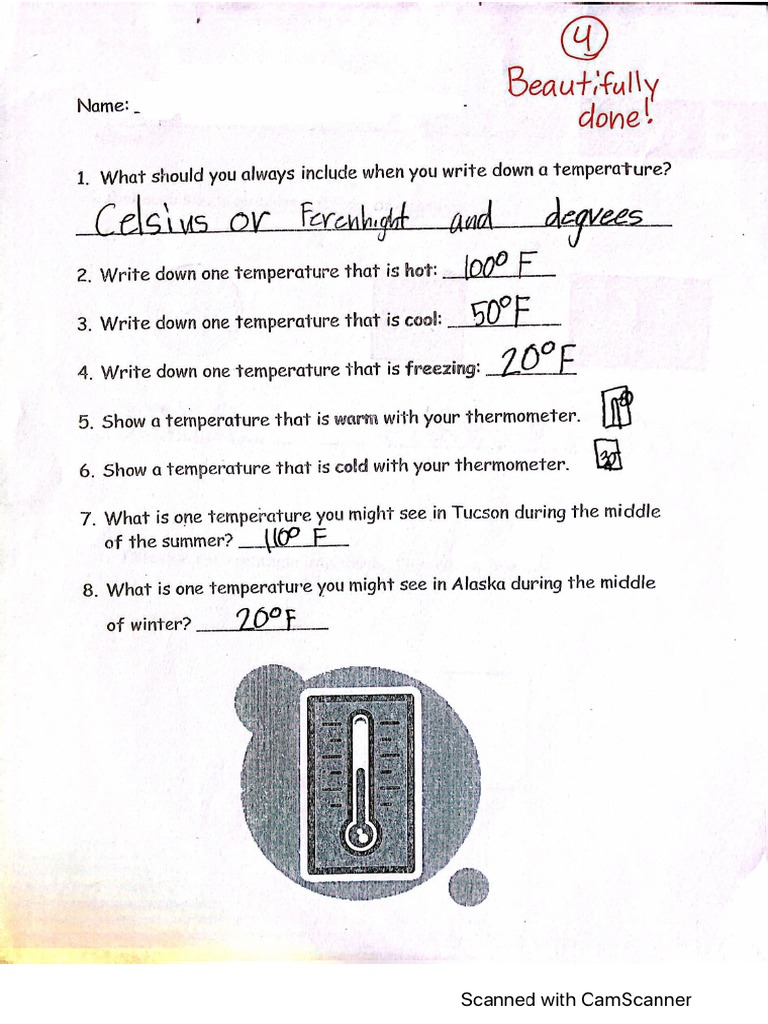 4
Beautifully
done!
Name:
1. What should you always include when you write down a temperature?
Celsius or Ferenhight and degrees
2. Write down one temperature that is hot: 100° F
3. Write down one temperature that is cool: 50°F
4. Write down one temperature that is freezing: 20°F
5. Show a temperature that is warm with your thermometer.
6. Show a temperature that is cold with your thermometer. 30
7. What is one temperature you might see in Tucson during the middle
of the summer? 110° F
8. What is one temperature you might see in Alaska during the middle
of winter? 20°F
Scanned with CamScanner